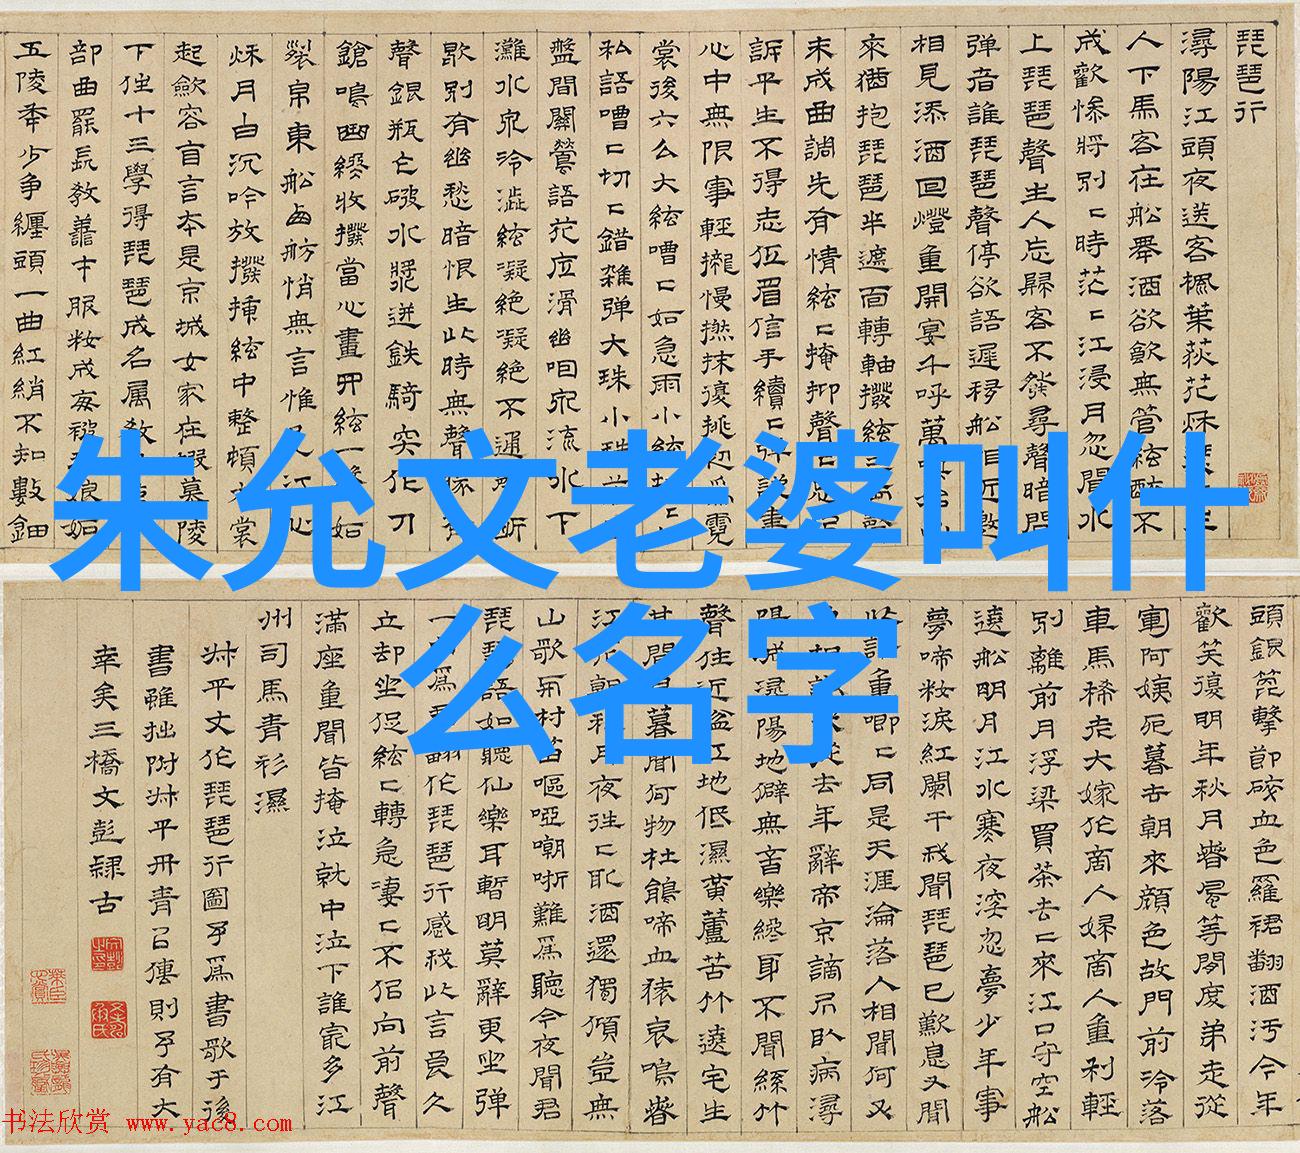 琵琶行
潯陽江頭夜送客楓葉荻花秋瑟瑟主
人下馬客在船舉酒欲飲無管絃醉不
成歡慘將別〻時茫〻江浸月忽聞水
上琵琶聲主人忘歸客不發尋聲暗問
彈者誰琵琶聲停欲語遲移船相近邀
相見添酒回燈重開宴千呼萬喚始出
來猶抱琵琶半遮面轉軸撥絃三兩聲
未成曲調先有情絃〻掩抑聲〻思似
訴平生不得志低眉信手續〻彈說盡
心中無限事輕攏慢撚抹復挑初為霓
裳後六么大絃嘈〻如急雨小絃切〻如
私語嘈〻切〻錯雜彈大珠小珠落玉
盤間關鶯語花底滑幽咽泉流水下
灘水泉冷澁絃凝絕凝絕不通聲漸
歇別有幽愁暗恨生此時無聲勝有
聲銀瓶乍破水漿迸鉄騎突出刀
鎗鳴曲終收撥當心畫四絃一聲如
裂帛東船西舫悄無言惟見江心
秋月白沉吟放撥揷絃中整頓衣裳
起斂容自言本是京城女家在蝦蟇陵
下住十三學得琵琶成名属教坊第一
部曲罷長教善才服粧成每被秋娘妬
五陵年少爭纏頭一曲紅綃不知數鈿
朱允文老婆叫什
么名字
頭銀篦擊節碎血色羅裙翻酒汚今年
歡笑復明年秋月春風等閒度弟走從
軍阿姨死暮去朝來顏色故門前冷落
車馬稀老大嫁作商人婦商人重利輕
別離前月浮梁買茶去〻來江口守空船
遶船明月江水寒夜深忽夢少年事
夢啼粧淚紅闌干我聞琵琶已歎息又聞
此語重唧〻同是天涯淪落人相聞何必
曾相識我從去年辭帝京謫居臥病潯
陽城潯陽地僻無音樂終歲不聞絲竹
聲住近湓江地低濕黃蘆苦竹遶宅生
其間旦暮聞何物杜鵑啼血猿哀鳴春
江花朝秋月夜往〻取酒還獨傾豈無
山歌與村笛嘔啞嘲哳難為聽今夜聞君
琵琶語如聽仙樂耳暫明莫辭更坐彈
一曲為君翻作琵琶行感我此言良久
立却坐促絃〻轉急凄〻不似向前聲
滿座重聞皆掩泣就中泣下誰寂多江
州司馬青衫濕
叔平丈作琵琶行圖予為書歌于後
書雖拙附叔平丹青以傳則予有大
幸矣三橋文彭隸古
书法欣赏 www.yac8.com